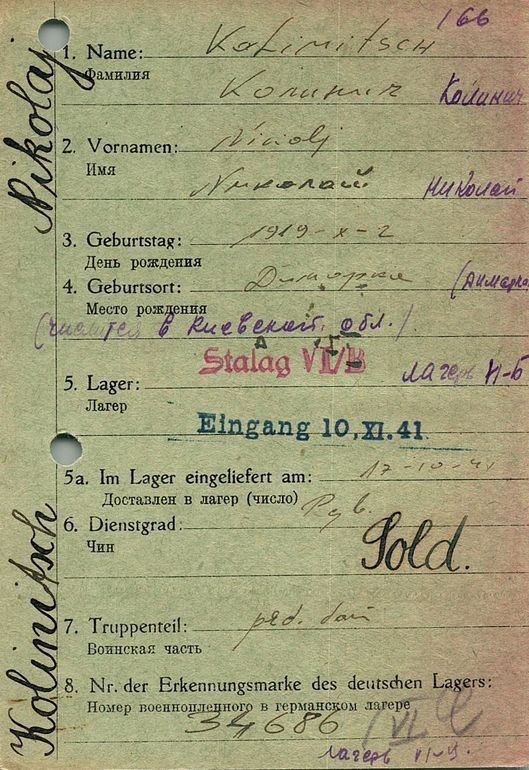 166
Nikolaj
Kolinitsch
1. Name: Kolinitsch
Фамилия
Колинич Колинич
2. Vornamen: Nicolj
Имя
Николай Николай
3. Geburtstag: 1919-X-2
День рождения
4. Geburtsort: Димарка (Димарка
Место рождения
(числится в Киевской обл.)
Stalag VI/B
5. Lager: лагерь VI-Б
Лагерь
Eingang 10. XI. 41
5a. Im Lager eingeliefert am: 17-10-41
Доставлен в лагерь (число)
6. Dienstgrad:
Чин
Sold.
7. Truppenteil:
Воинская часть
8. Nr. der Erkennungsmarke des deutschen Lagers:
Номер военнопленного в германском лагере
34686
VI
лагерь